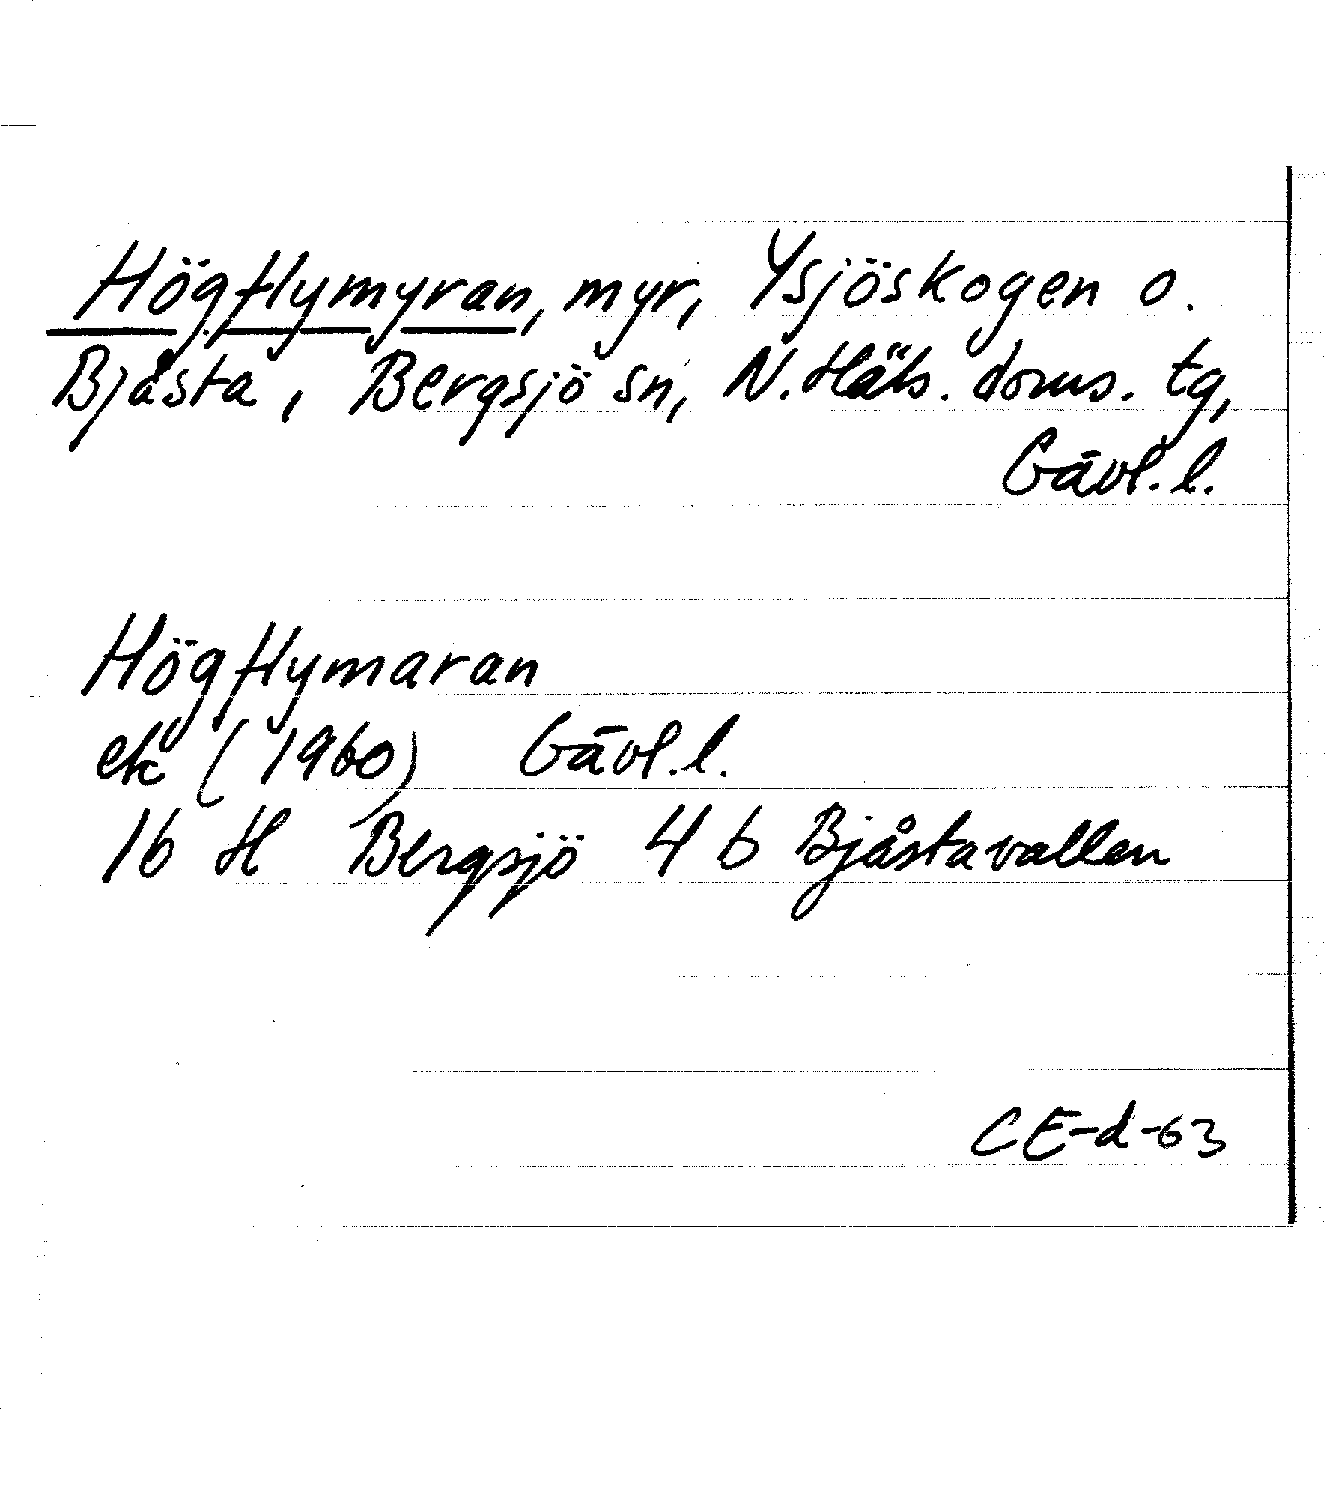 Högflymyran, myr, Ysjöskogen o.
Bjåsta, Bergsjö sn, N. Häls. doms. tg,
Gävl. l.
Högflymaran
ek (1960) Gävl. l.
16 H Bergsjö 4 b Bjåstavallen
CE-d-63